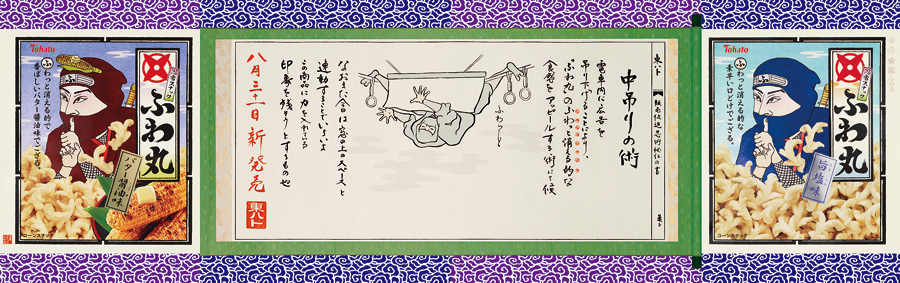 東ハト
中吊りの術
電車内に広告を
吊り下げることにより、
「ふわ丸」のふわっと消える的な
食感をアピールする術にて候
ふわり〜
連動するなどいよいよ
この商品に力を入れている
印象を残そうとするもの也
八月三十一日新発売
東ハト
Tohato
ふわっと消える的な
素早い口どけでござる。
ふわ丸
旨塩味
コーンスナック
Tohato
ふわっと消える的で
香ばしいバター醤油味でござる。
ふわ丸
バター醤油味
コーンスナック